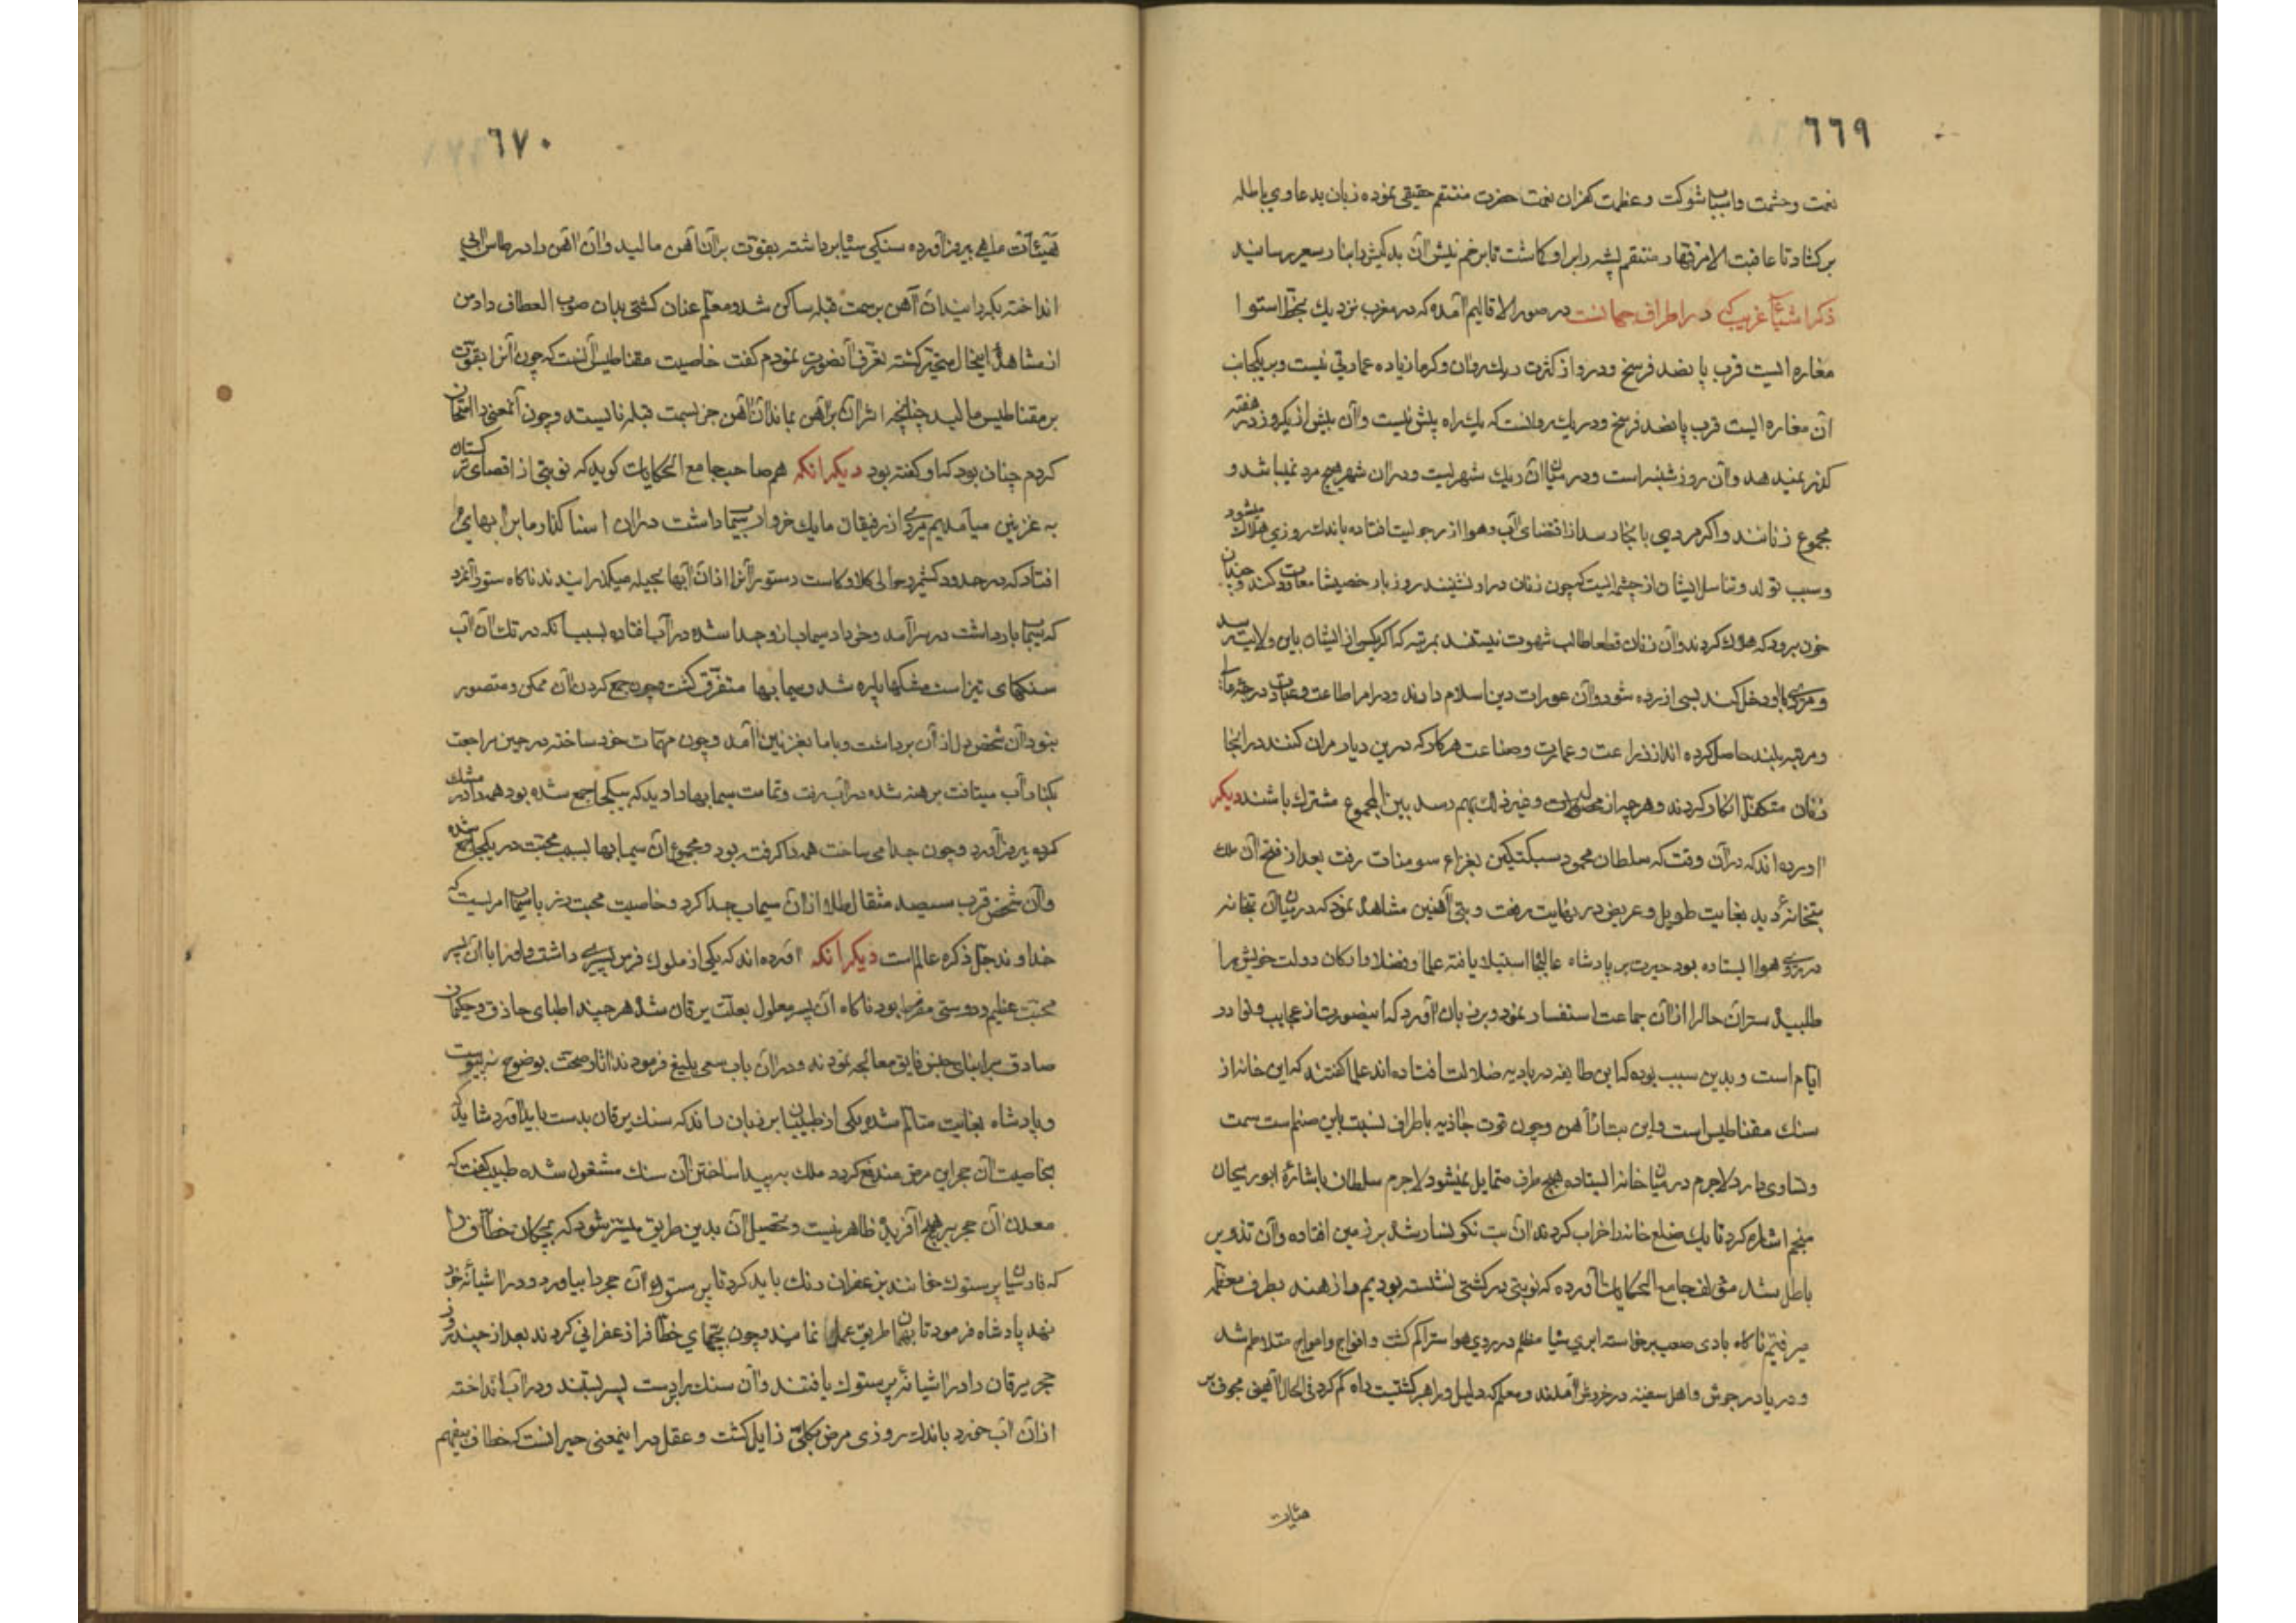 ٦٦٩
نعمت وحشمت واسباب شوکت وعظمت کفران نعمت حضرت منتقم حقیقی نموده زبان بدعاوی باطله
برکشاد تا عاقبت الامر قهار منتقم پشه را براو کاشت تا بزخم نیش آن بدکیش را بنار سعیر رسانید
ذکر اشیأ غریب که در اطراف جهانست در صور الاقالیم آمده که در مغرب نزدیك بخط استوا
مغاره ایست قرب پانصد فرسخ ودرو از کثرت ریك روان وکرما زیاده عمارتی نیست وبر یکجانب
آن مغاره ایست قرب پانصد فرسخ ودر ریك روانست که یك راه پیش نیست وآن بیش از یکروز در هفته
کذر نمیدهد وآن روز شنبه است ودر میان آن ریك شهریست ودران شهر هیچ مرد نمیباشد و
مجموع زنانند واکر مردی بانجا رسد از اقتضای آب وهوا از رجولیت افتاده باندك روزی هلاك میشود
وسبب تولد وتناسل ایشان از چشمه ایست که چون زنان در او نشینند روز بار خصیشا معاودت کنند وچنان
خون برود که هلاك کردند وآن زنان قطعا طالب شهوت نیستند بمرتبه که اکر یکی از ایشان باین ولایت رسد
ومردی با او دخل کند بسی آزرده شود وآن عورات دین اسلام دارند ودر امر اطاعت وعبادت درجه عالی
ومرتبه بلند حاصل کرده اند از زراعت وعمارت وصناعت هر کار که درین دیار مردان کنند در انجا
زنان متکفل انکار کردند وهر چه از محصولات وغیر ذلك بهم رسد بین المجموع مشترك باشند دیکر
آورده اند که در آن وقت که سلطان محمود سبکتکین بغزاء سومنات رفت بعد از فتح آن ملك
بتخانهٔ دید بغایت طویل وعریض در نهایت رفعت وبتی آهنین مشاهده نمود که در میان آن بتخانه
در روی هوا ایستاده بود حیرت بر پادشاه عالیجا استیلا یافته علما وفضلا وارکان دولت خویش را
طلبیده سر آن حال را از آن جماعت استفسار نمود وبر زبان آورد که اینصورت از عجایب ونوادر
ایام است وبدین سبب بوده که این طایفه در بادیه ضلالت افتاده اند علما کفتند که این خانه از
سنك مقناطیس است واین بت از آهن وچون قوت جاذبه باطراف نسبت باین صنم است سمت
وتساوی دارد لاجرم در میان خانه ایستاده بهیچ طرف متمایل نمیشود لاجرم سلطان باشارهٔ ابوریحان
منجم اشاره کرد تا یك ضلع خانه را خراب کردند آن بت نکونسار شده بر زمین افتاده وآن تذویر
باطل شد مؤلف جامع الحکایات آورده که نوبتی در کشتی نشسته بودیم واز هند بطرف معظمه
میرفتیم ناکاه بادی صعب برخاسته ابری سیا مظلم در روی هوا متراکم کشت وافواج وامواج متلاطم شد
ودریا در جوش واهل سفینه در خروش آمدند ومعلم که دلیل وراهبر کشتیست راه کم کرد فی الحال آهنی مجوف بر
هیئات
٦٧٠
هیئات ماهی بیرون آورده سنکی سیا برداشته بقوت بر آن آهن مالید وآن آهن را در طاس آبی
انداخته بکردانید آن آهن بر سمت قبله ساکن شد ومعلم عنان کشتی بدان صوب انعطاف داد من
از مشاهدهٔ اینحال متحیر کشته تعرف آنصورت نمودم کفت خاصیت مقناطیس آنست که چون آنرا بقوت
بر مقناطیس مالید چنانچه اثر آن بر آهن بماند آن آهن جز بسمت قبله نایستد وچون آنمعنی را امتحان
کردم چنان بود که او کفته بود دیکر انکه هم صاحب جامع الحکایات کوید که نوبتی از اقصای ترکستان
به غزنین میآمدیم مردی از رفیقان ما یك خروار سیماب داشت در آن اسنا کذار ما بر آبهای
افتاد که در حدود کشمیر وحوالی کلاو کاست دستور آنرا از آن آبها بحیله میکذرانیدند ناکاه ستور آنمرد
که سیماب بار داشت در سر آمد وخروار سیماب ازو جدا شده در آب افتاده بسبب آنکه در تك آن آب
سنکهای تیز است مشکها پاره شد وسیمابها متفرق کشت وچون جمع کردن آن ممکن ومتصور
نبود آن شخص دل از آن برداشت وبا ما بغزنین آمد وچون مهمات خود ساخته در حین مراجعت
بکنار آب میتافت برهنه شده در آب رفت وتمامت سیمابها را دید که بیکجا جمع شده بود همه را در مشك
کرده بیرون آورد وچون جدا می ساخت همه را کرفته بود ومجموع آن سیمابها بسبب محبت در یکجا جمع شده
وآن شخص قرب سیصد مثقال طلا از آن سیماب جدا کرد وخاصیت محبت زر با سیماب امریست که
خداوند جل ذکره عالم است دیکر انکه آورده اند که یکی از ملوك فرس پسری داشت واورا با آن پسر
محبت عظیم ودوستی مفرط بود ناکاه آن پسر معلول بعلت یرقان شد هر چند اطبای حاذق وحکیمان
صادق بر ابنای جنس فایق معالجه نمودند ودر آن باب سعی بلیغ فرمودند آثار صحت بوضوح نه پیوست
وپادشاه بغایت متالم شده یکی از طبیبان بر زبان راند که سنك یرقان بدست باید آورد شاید که
بخاصیت آن حجر این مرض مندفع کردد ملك به پیدا ساختن آن سنك مشغول شده طبیب کفت که
معدن آن حجر بر هیچ آفریده ظاهر نیست وتحصیل آن بدین طریق میسر شود که بچکان خطاف را
که فارسیان پرستوك خوانند بزعفران رنك باید کرد تا پرستوك آن حجر را بیاورد ودر آشیانه خود
نهد پادشاه فرمود تا بهمان طریق عمل نمایند وچون بچهای خطاف را زعفرانی کردند بعد از چند روز
حجر یرقان را در آشیانه پرستوك یافتند وآن سنك را بر دست پسر بستند ودر آب انداخته
از آن آب خورد باندك روزی مرض بکلی زایل کشت وعقل در اینمعنی حیرانست که خطاف بیفهم